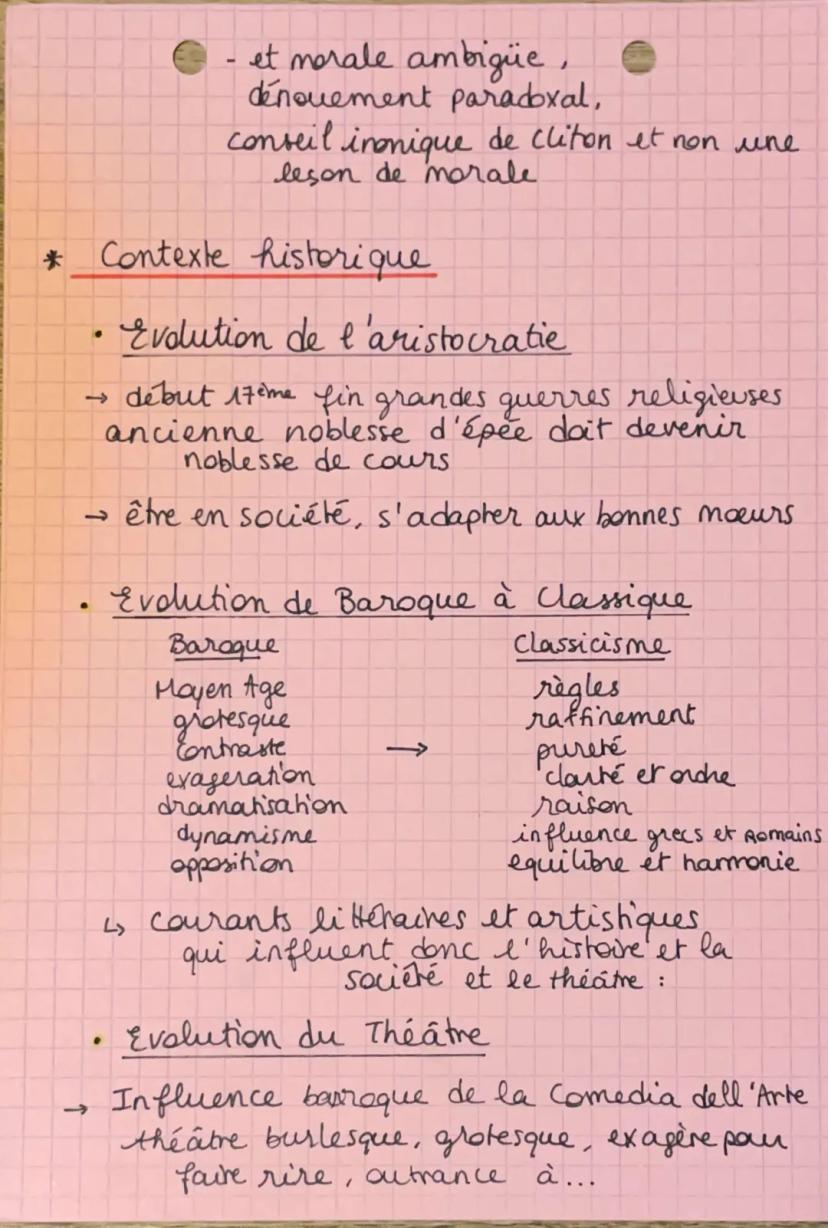 - et morale ambigüe,
dénouement paradoxal,
conseil ironique de Cliton et non une
leson de morale
* Contexte historique
• Evolution de l'aristocratie
→ début 17ème fin grandes guerres religieuses
ancienne noblesse d'épée doit devenir
noblesse de cours
→ être en société, s'adapter aux bonnes mœurs
• Evolution de Baroque à Classique
Baroque Classicisme
Moyen Age règles
grotesque raffinement
Contraste → pureté
exageration clarté et ordre
dramatisation raison
dynamisme influence grecs et Romains
opposition equilibre et harmonie
↳ courants littéraires et artistiques
qui influent donc l'histoire et la
société et le théâtre :
• Evolution du Théâtre
→ Influence baroque de la Comedia dell'Arte
théâtre burlesque, grotesque, exagère pour
faire rire, outrance à...